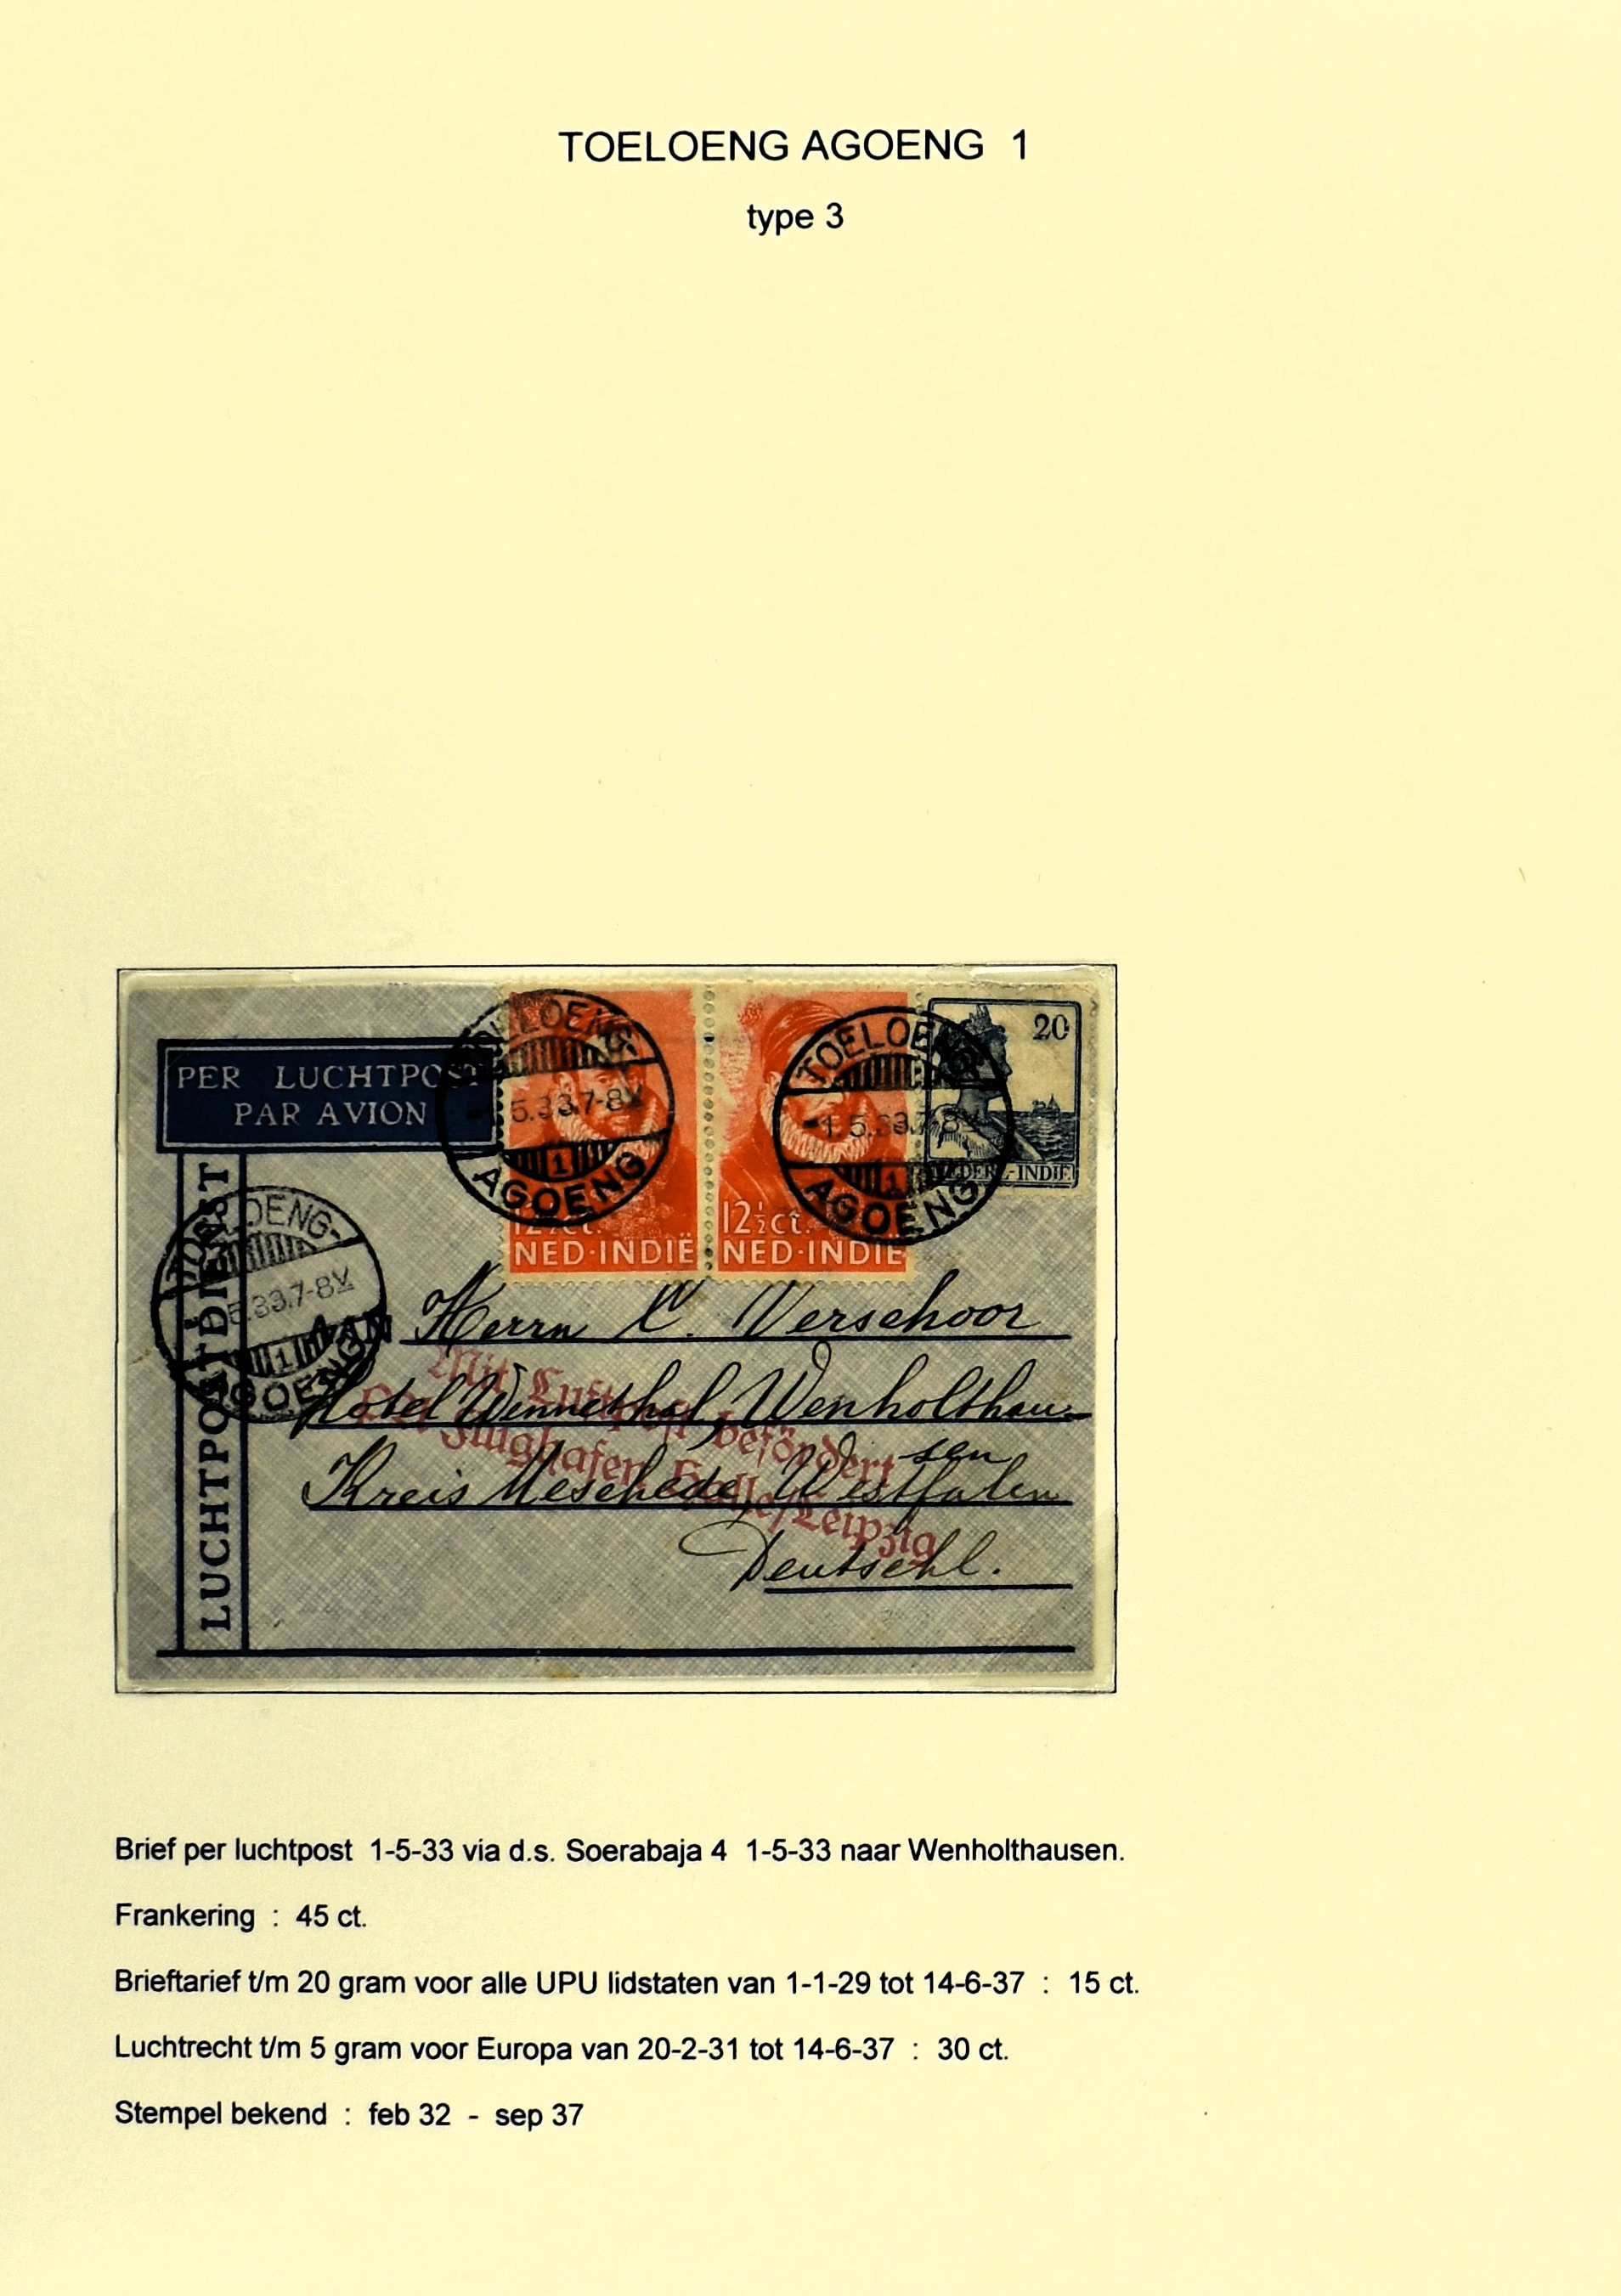 TOELOENG AGOENG 1
type 3
PER LUCHTPOST
PAR AVION
LUCHTPOSTDIENST
TOELOENG-
5.33.7-8V
1
AGOENG
TOELOENG-
-1.5.33.7-8V
1
AGOENG
20
NEDERL.-INDIË
12½ ct.
NED·INDIË
12½ ct.
NED·INDIË
TOELOENG-
5.33.7-8V
1
AGOENG
AAN
Herrn C. Verschoor
Hotel Wennethal, Wenholthau-
sen
Kreis Meschede, Westfalen
Deutschl.
Mit Luftpost befördert
Flughafen Halle/Leipzig
Brief per luchtpost 1-5-33 via d.s. Soerabaja 4 1-5-33 naar Wenholthausen.
Frankering : 45 ct.
Brieftarief t/m 20 gram voor alle UPU lidstaten van 1-1-29 tot 14-6-37 : 15 ct.
Luchtrecht t/m 5 gram voor Europa van 20-2-31 tot 14-6-37 : 30 ct.
Stempel bekend : feb 32 - sep 37